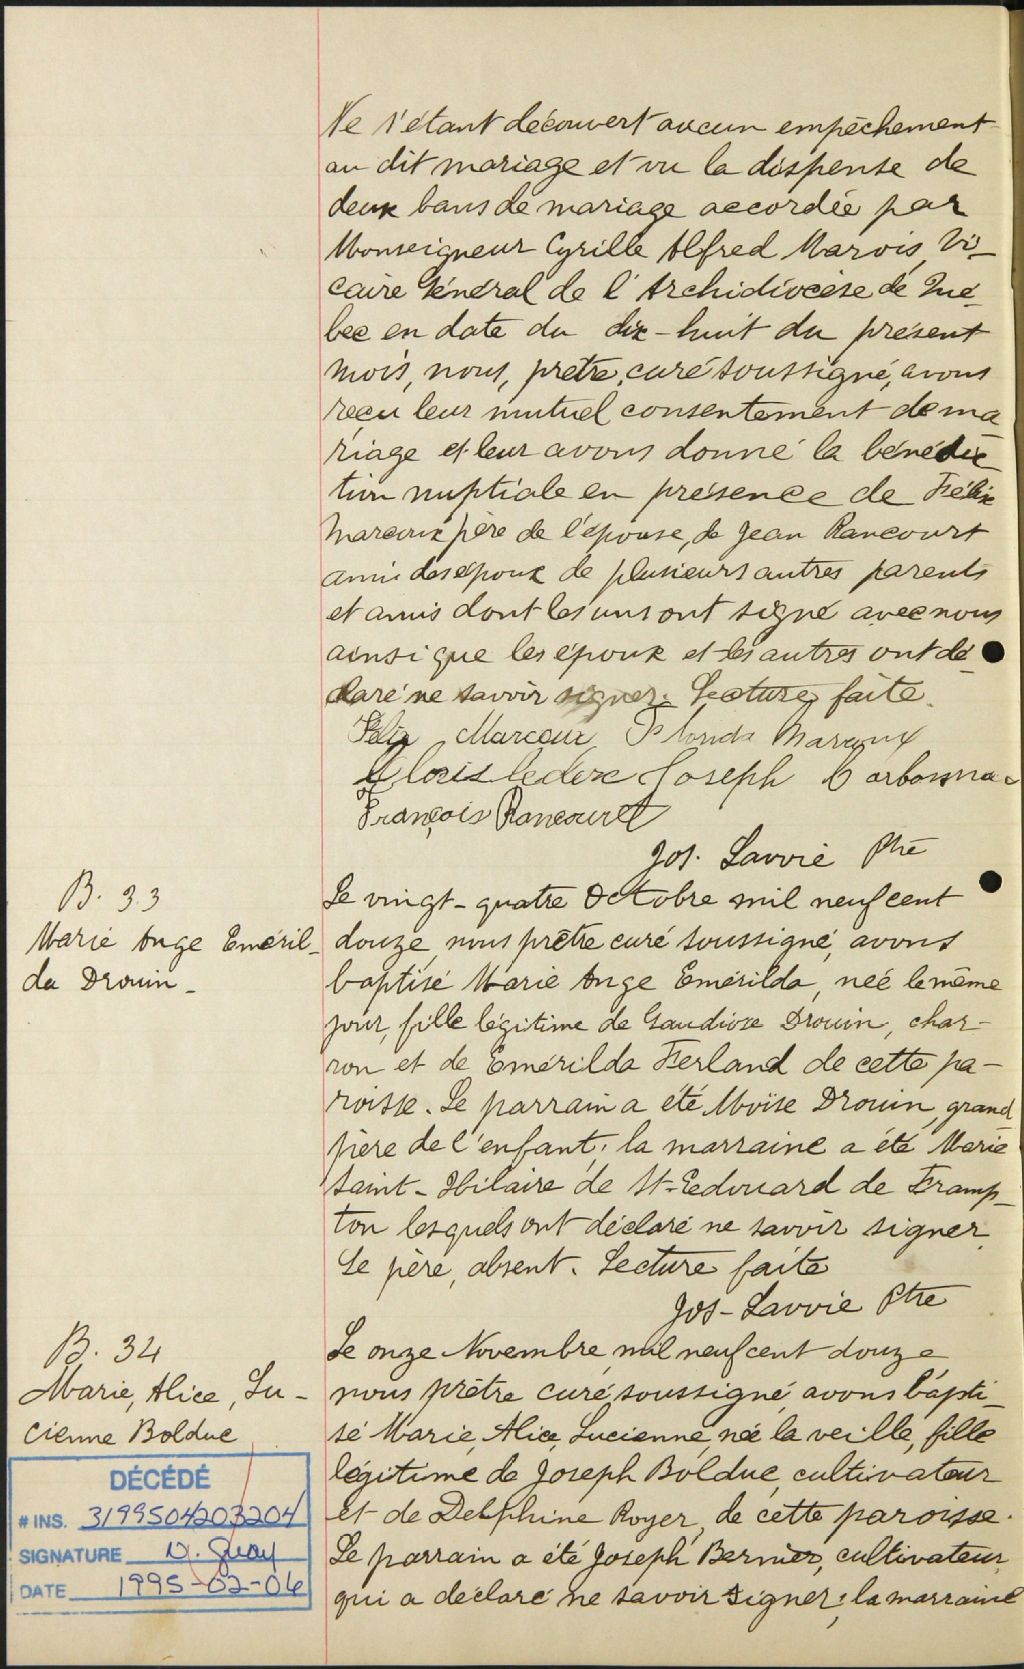 Ne s'étant découvert aucun empêchement
au dit mariage et vu la dispense de
deux bans de mariage accordée par
Monseigneur Cyrille Alfred Marois, Vi-
caire Général de l'Archidiocèse de Qué-
bec en date du dix-huit du présent
mois, nous, prêtre, curé soussigné, avons
reçu leur mutuel consentement de ma-
riage et leur avons donné la bénédic-
tion nuptiale en présence de Félix
Marcoux père de l'épouse, de Jean Rancourt
ami des époux de plusieurs autres parents
et amis dont les uns ont signé avec nous
ainsi que les époux et les autres ont dé-
claré ne savoir signer. Lecture faite.
Félix Marcoux Florida Marcoux
Joseph
François Rancourt
Jos. Lavoie Ptre
B. 33
Marie Ange Eméril-
da Drouin -
Le vingt-quatre Octobre mil neuf cent
douze, nous prêtre curé soussigné, avons
baptisé Marie Ange Emérilda, née le même
jour, fille légitime de Gaudiose Drouin, char-
ron et de Emérilda Ferland de cette pa-
roisse. Le parrain a été Moïse Drouin, grand
père de l'enfant; la marraine a été Marie
Saint-Hilaire de St-Edouard de Framp-
ton lesquels ont déclaré ne savoir signer.
Le père, absent. Lecture faite
Jos-Lavoie Ptre
B. 34
Marie, Alice, Lu-
cienne Bolduc
DÉCÉDÉ
# INS. 3199504203204
SIGNATURE
DATE 1995-02-06
Le onze Novembre mil neuf cent douze
nous prêtre curé soussigné, avons bapti-
sé Marie, Alice, Lucienne, née la veille, fille
légitime de Joseph Bolduc, cultivateur
et de Delphine Royer, de cette paroisse.
Le parrain a été Joseph Bernier, cultivateur,
qui a déclaré ne savoir signer; la marraine